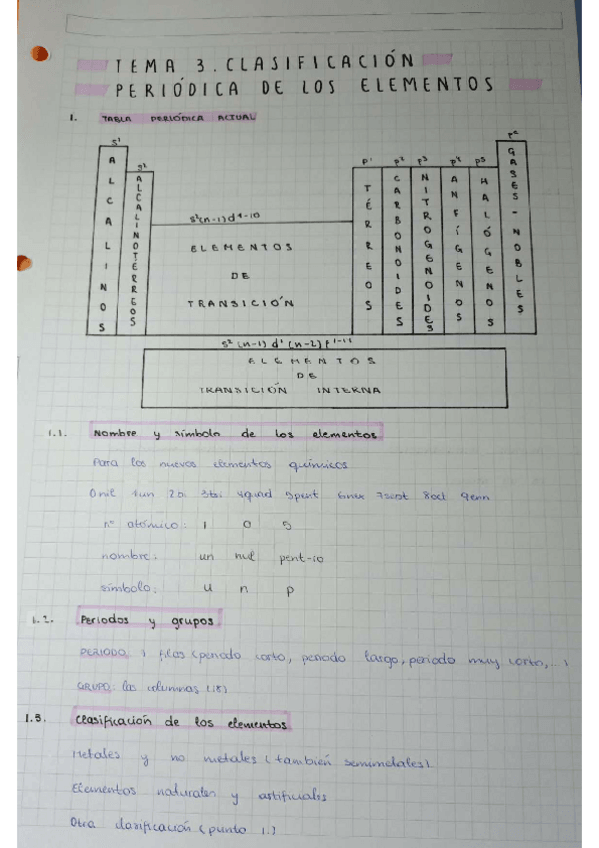 TEMA 3. CLASIFICACIÓN
PERIÓDICA DE LOS ELEMENTOS
1. TABLA PERIÓDICA ACTUAL
s¹
ALCALINOS
s²
ALCALINOTERREOS
s²(n-1)d¹⁻¹⁰
ELEMENTOS
DE
TRANSICIÓN
p¹
TÉRREOS
p²
CARBONOIDES
p³
NITROGENOIDES
p⁴
ANFÍGENOS
p⁵
HALÓGENOS
GASES-NOBLES
s² (n-1) d¹ (n-2) f
ELEMENTOS
DE
TRANSICIÓN INTERNA
1.1. Nombre y símbolo de los elementos
Para los nuevos elementos químicos
0nil 1un 2bi 3tri 4quad 5pent 6hex 7sept 8oct 9enn
nº atómico: 1 0 5
nombre: un nil pent-io
símbolo: u n p
1.2. Periodos y grupos
PERIODO: filas (periodo corto, periodo largo, periodo muy corto,...)
GRUPO: las columnas (18)
1.3. Clasificación de los elementos
Metales y no metales (también semimetales)
Elementos naturales y artificiales
Otra clasificación (punto 1.)